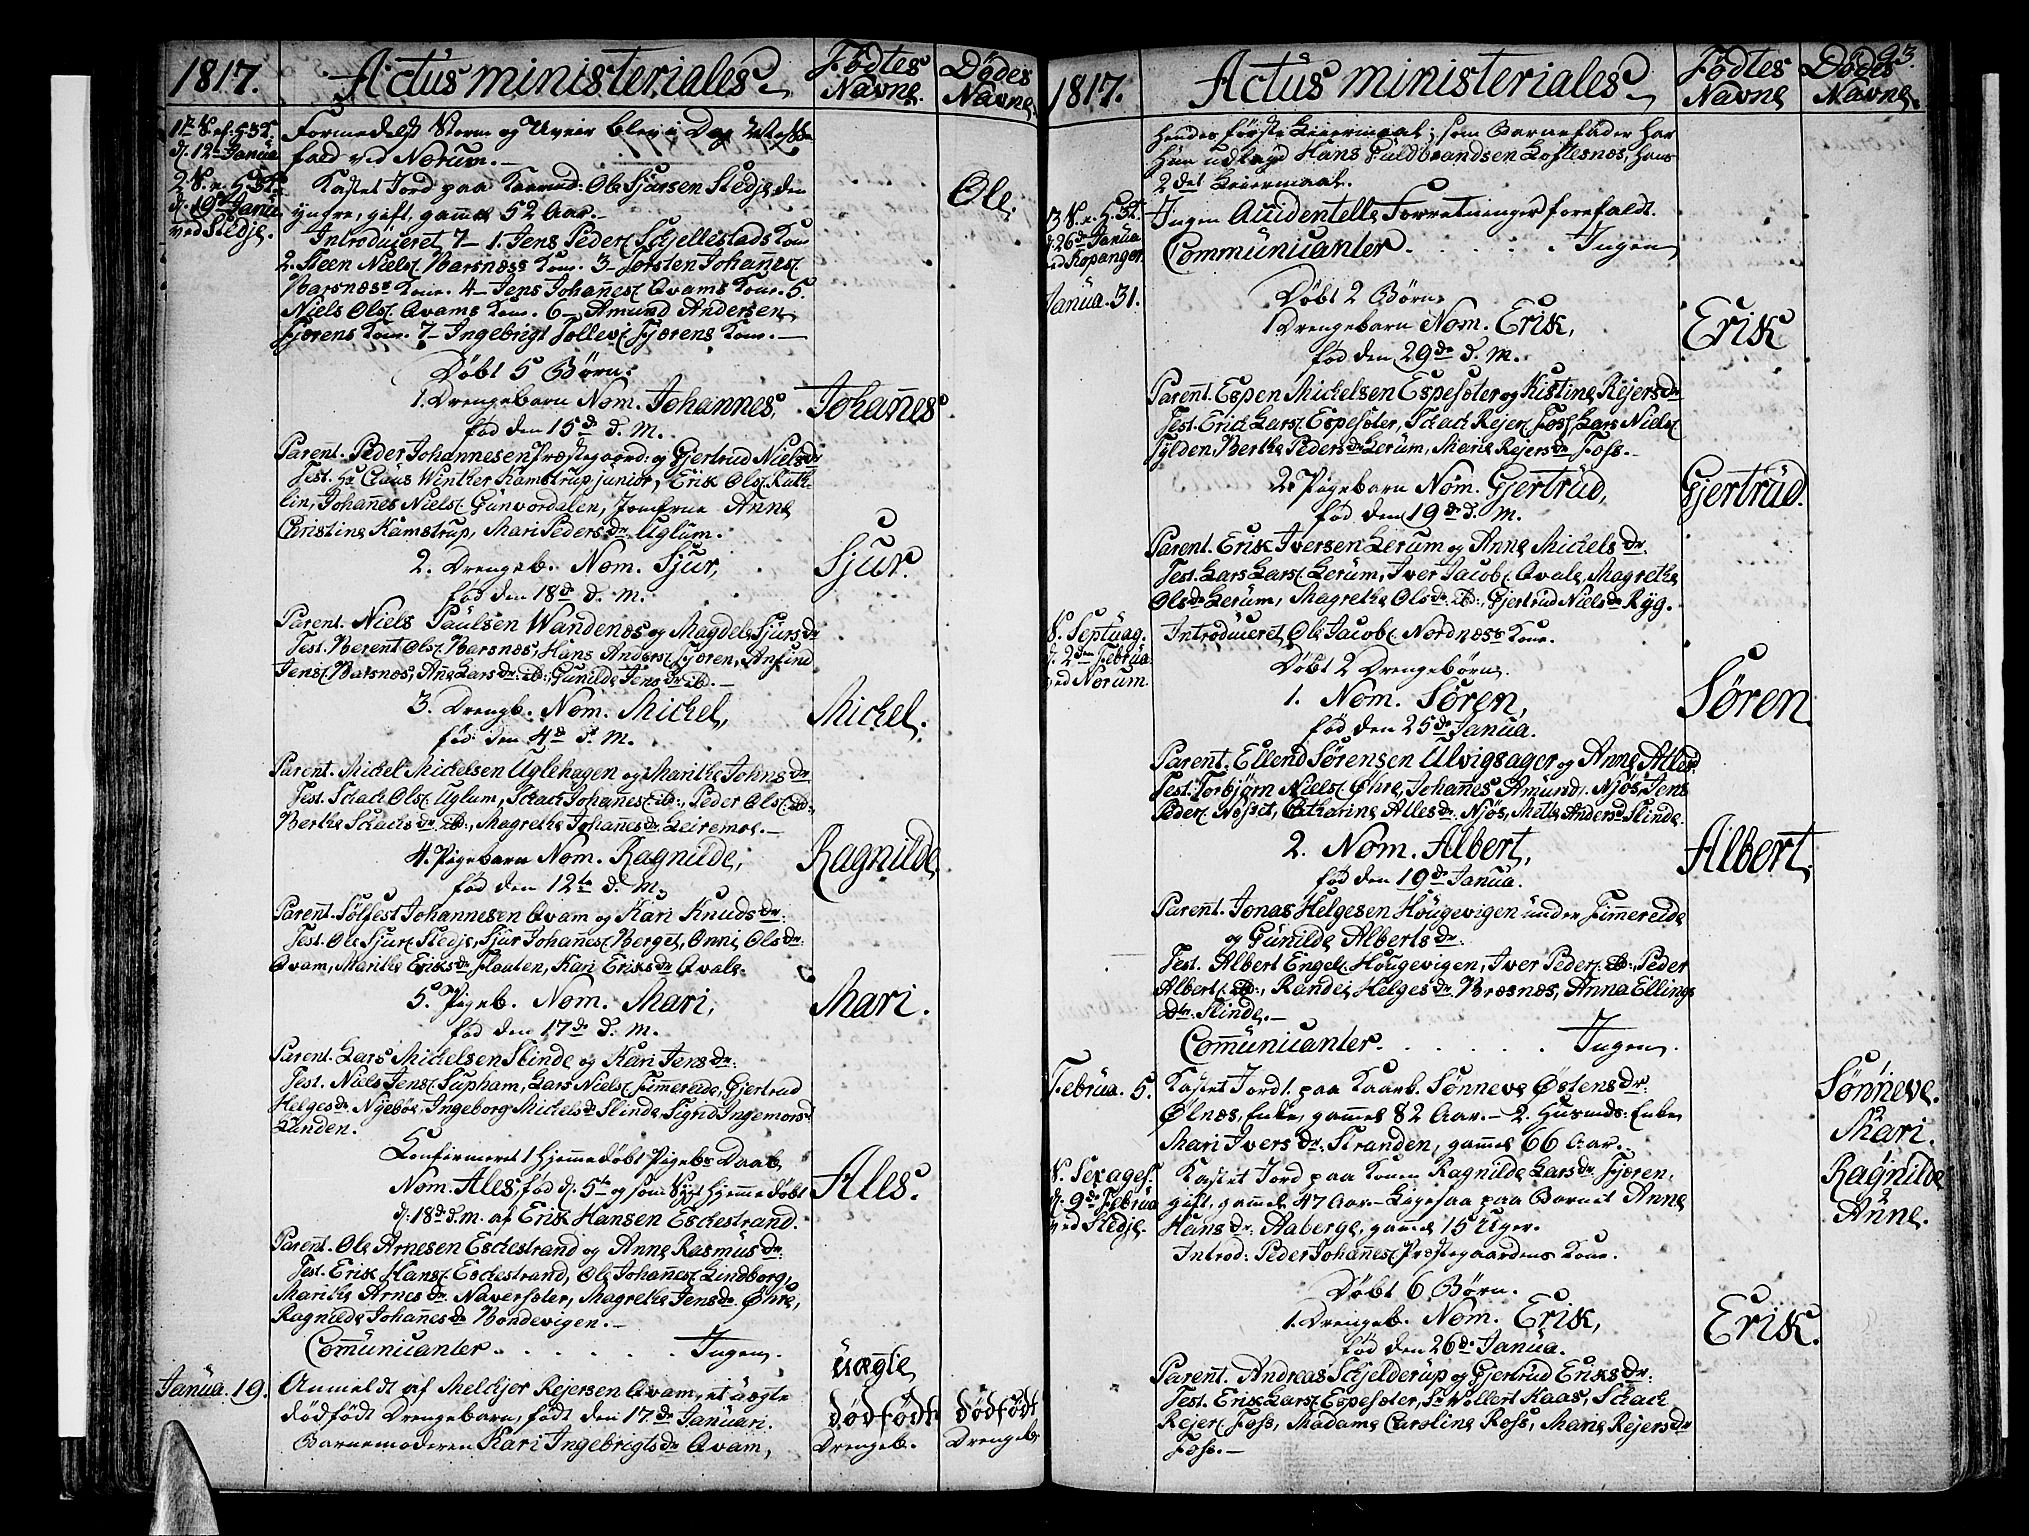 1817. Actus ministeriales. Fødtes Navne. Dødes Navne
1te S. ef. H. 3 K. d. 12te Janüa. Formedelst Storm og Uveir blev i Dag Messe-
fald ved Norum.
2 S. e. H. 3 K. d. 19de Janüa. ved Stedje. Kastet Jord paa Kaarmd: Ole Sjursen Stedje den Ole.
yngre, gift, gammel 52 Aar.
Introduceret 7 – 1. Jens Peders. Skjellestads Kone
2. Steen Niels. Barsnæss Kone. 3 – Torsten Johannes.
Barsnæss Kone. 4 – Jens Johannes. Qvams Kone. 5.
Niels Ols. Qvams Kone. 6 – Amund Andersen
Fjærens Kone. 7 – Ingebrigt Tollevs. Fjærens Kone.
Døbt 5 Børn:
1. Drengebarn Nom. Johannes, Johannes
fød den 15de d. M.
Parent. Peder Johannesen Præstegaard: og Gjertrud Nielsdr
Test. Hr Claus Winther Kamstrup junior, Erik Ols. Kut-
lin, Johannes Niels. Gunvordalen, Jomfrue Anne
Christine Kamstrup, Mari Pedersdr Uglum.
2. Drengeb. Nom. Sjur, Sjur.
fød den 18de d. M.
Parent. Niels Paulsen Wandenæs og Magdele Sjursdr
Test. Berent Ols. Barsnæs, Hans Anders. Fjæren, Anfind
Jens. Barsnæs, Ane Larsdr. ibd:, Gunilde Jensdr ibd.
3. Drengb. Nom. Michel, Michel.
fød den 4de d. M.
Parent. Michel Michelsen Uglehagen og Marithe Johnsdr
Test. Schach Ols. Uglum, Schach Johannes. ibd:, Peder Ols. ibd:,
Berthe Schachsdr ibd:, Magrethe Johannesdr Leiremoe.
4. Pigebarn Nom. Ragnilde, Ragnilde
fød den 12te d. M.
Parent. Sølfest Johannesen Qvam og Kari Knudsdr:
Test. Ole Sjurs. Stedje, Sjur Johannes. Berget, Onni Olsdr:
Qvam, Marithe Eriksdr. Flaaten, Kari Eriksdr Qvale.
5. Pigeb. Nom. Mari, Mari.
fød den 17de d. M.
Parent. Lars Michelsen Slinde og Kari Jensdr:
Test. Niels Jens. Supham, Lars Niels. Fimmereide, Gjertrud
Helgesdr. Nyebøe, Ingeborg Michelsdr Slinde, Sigrid Ingemorsd
Lunden.
Confirmeret 1 hjemmedøbt Pigebs Daab
Nom. Ales, fød d. 5te og som sygt hjemmedøbt Ales.
d. 18de d. M. af Erik Hansen Eschestrand.
Parent. Ole Arnesen Eschestrand og Anne Rasmusdr:
Test. Erik Hans. Eschestrand, Ole Johannes. Lindborg,
Marithe Arnesdr. Naversæter, Magrethe Jensdr. Øhre,
Ragnilde Johannesdr Bondevigen.
Communicanter . . . . . . Ingen.
Janüa. 19. Anmeldt af Melchjor Rejersen Qvam, et üægte üægte
dødfødt Drengebarn, født den 17de Januari. dødfødt Drengeb. dødfødt Drengeb
Barnemoderen Kari Ingebrigtsdr Qvam,
1817. Actus ministeriales. Fødtes Navne Dødes Navne. 93.
hendes første Leiermaal; som Barnefader har
hun udlagd Hans Guldbrandsen Loftesnæs, hans
2det Leiermaal.
3 S. e. H. 3 K. d. 26de Janüa. ved Kopanger. Ingen Accidentelle Forretninger forefaldt.
Communicanter . . . . . Ingen
Janüa. 31. Døbt 2 Børn.
1 Drengebarn Nom. Erik, Erik
fød den 29de d. M.
Parent. Espen Michelsen Espesæter og Kistine Rejersdr
Test. Erich Lars. Espesæter, Schach Rejers. Foss, Lars Niels.
Fylden, Berthe Pedersdr Lerum, Marie Rejersdr Foss.
2. Pigebarn Nom. Gjertrüd, Gjertrüd.
fød den 19de d. M.
Parent. Erik Iversen Lerum og Anne Michelsdr.
Test. Lars Lars. Lerum, Iver Jacobs. Qvale, Magrethe
Olsdr Lerum, Magrethe Olsdr ibd:, Gjertrud Nielsdr Ryg.
S. Septuag. d. 2den Februa. ved Norum. Introduceret Ole Jacobs. Nordnæss Kone.
Døbt 2 Drengebørn.
1. Nom. Søren, Søren.
fød den 25de Janüa.
Parent. Ellend Sørensen Ulvigsager og Anne Atles.
Test. Torbjørn Niels. Øhre, Johannes Amunds. Njøs, Jens
Peders. Nosset, Catharine Atlesdr. Njøs, Mette Andersd Slinde.
2. Nom. Albert, Albert.
fød den 19de Janüa.
Parent. Jonas Helgesen Hougevigen ünder Fimmereide
og Gunilde Albertsdr:
Test. Albert Engel. Hougevigen, Iver Peders. ibd:, Peder
Alberts. ibd:, Randei Helgesdr. Bræsnæs, Anna Ellings
dtr. Slinde.
Communicanter. . . . . . Ingen.
Februa. 5. Kastet Jord 1. paa Kaarb. Sønneve Østensdr: Sønneve.
Ølnæs, Enke, gammel 82 Aar. – 2. Husmds: Enke
Mari Iversdr: Stranden, gammel 66 Aar. Mari.
S. Sexages. d. 9de Februa ved Stedje. Kastet Jord paa Konen Ragnilde Larsdr. Fjæren, Ragnilde
gift, gammel 47 Aar. – Ligesaa paa Barnet Anne
Hansdr. Aaberge, gammel 15 Uger. Anne.
Introd: Peder Johannes. Præstegaardens Kone.
Døbt 6 Børn.
1. Drengeb. Nom. Erik, Erik.
fød den 26de Janüa.
Parent. Andreas Schjelderup og Gjertrud Eriksdr:
Test. Erik Lars. Espesæter, Sr Wollert Kaas, Schach
Rejers. Foss, Madame Caroline Ross, Marie Rejersdr
Foss.